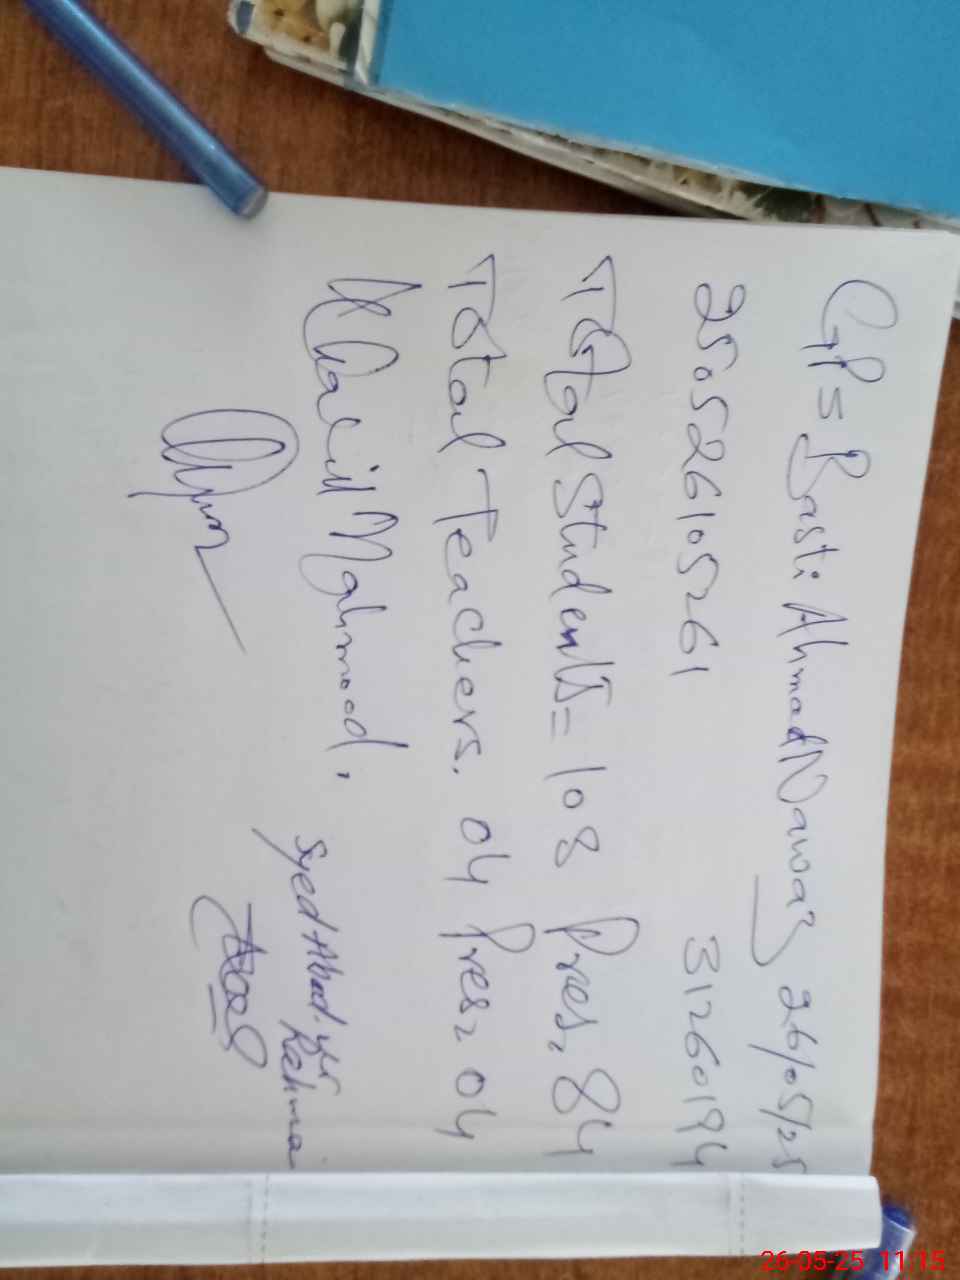 GPS Basti Ahmad Nawaz 26/05/25
25052610 5261 31260194
Total Students = 108 Pres, 84
Total Teachers. 04 Pres, 04
Khalil Mahmood,
Syed Abad-ur
Rahma
26-05-25 11:15